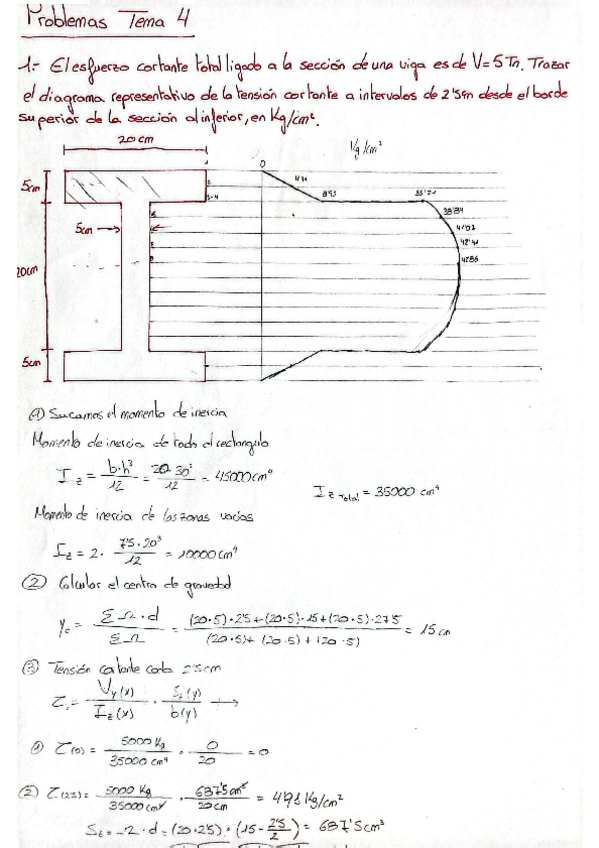 Problemas Tema 4
1.- El esfuerzo cortante total ligado a la sección de una viga es de V=5Tn. Trazar
el diagrama representativo de la tensión cortante a intervalos de 2'5cm desde el borde
superior de la sección al inferior, en Kg/cm².
20cm
0
Kg/cm²
5cm
8'93
35'71
38'84
5cm
41'07
42'41
42'86
20cm
5cm
① Sacamos el momento de inercia
Momento de inercia de todo el rectangulo
I z = b·h³/12 = 20·30³/12 = 45000cm⁴
I z Total = 35000 cm⁴
Momento de inercia de las zonas vacias
I z = 2 · 7'5·20³/12 = 10000cm⁴
② Calcular el centro de gravedad
Yc = ΣΩ·d/ΣΩ = (20·5)·2'5+(20·5)·15+(20·5)·27'5/(20·5)+(20·5)+(20·5) = 15cm
③ Tensión cortante cada 2'5cm
τ = Vy(x)/Iz(x) · Sz(y)/b(y) →
① τ(0) = 5000 Kg/35000 cm⁴ · 0/20 = 0
② τ(2'5) = 5000 Kg/35000cm⁴ · 687'5cm³/20cm = 4'91 Kg/cm²
Sz = Ω·d = (20·2'5)·(15-2'5/2) = 687'5cm³